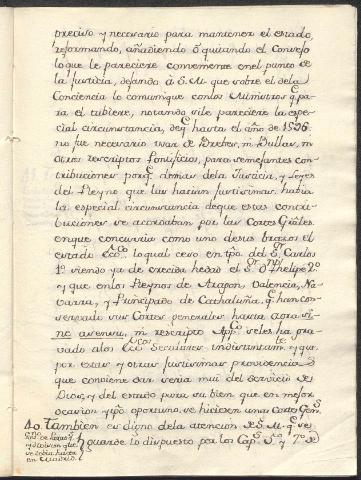 preciso y necesario para mantener el estado,
reformando, añadiendo ô quitando el Consejo
lo que le pareciere conveniente en el punto de
la Justicia, dejando á S. M. que sobre el de la
Conciencia lo comunique con los Ministros q.e pa-
ra el tubiere, notando si le pareciere la espe-
cial circunstancia, de q.e hasta el año de 1536.
no fue necesario usar de Brebes, ni Bullas, ni
otros rescriptos Pontificios, para semejantes con-
tribuciones porq.e demas de la Justicia, y Leyes
del Reyno que las hacian justisimas, habia
la especial circunstancia de que estas contri-
buciones se acordaban por las Cortes Grâles.
en que concurria como uno de sus brazos el
estado Ecc.co lo qual ceso en tpo. del S.or Carlos
1.º siendo ya de crecida hedad el S.or D.n Phelipe 2.º
y que en los Reynos de Aragon, Valencia, Na-
varra, y Principado de Cathaluña, q.e han con-
servado sus Cortes generales hasta agora si-
ne assensu, ni rescripto App.co se les ha gra-
vado a los Ecc.cos Seculares indistintam.te y que
por estas y otras justisimas providencias
que conviene dar seria mui del servicio de
Dios, y del estado para su bien que en mejor
ocasion y tpo. oportuno se hiciesen unas Cortes Gen.s
40. Tambien es digno de la atencion de S. M. q.e se
guarde lo dispuesto por los Cap.s 5.º y 7.º de
en Madrid.